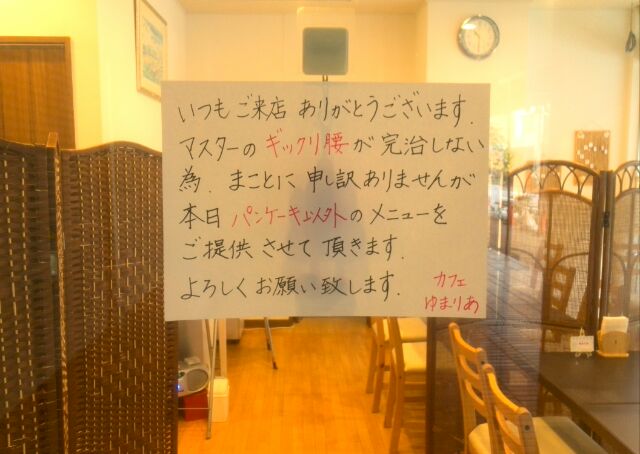 いつもご来店ありがとうございます.
マスターのギックリ腰が完治しない
為.まことに申し訳ありませんが
本日パンケーキ以外のメニューを
ご提供させて頂きます.
よろしくお願い致します.
カフェ
ゆまりあ